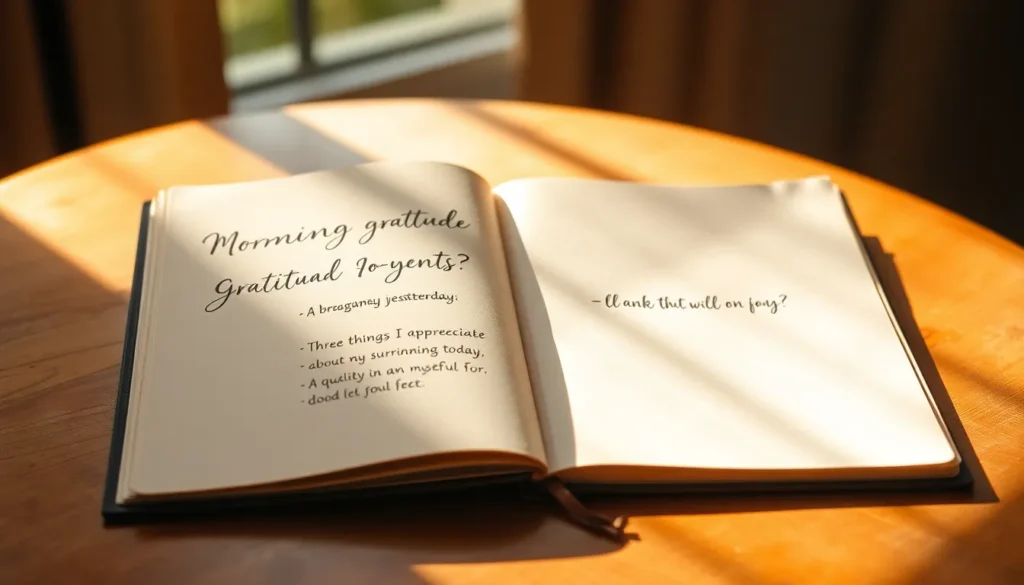 Morning grattude
Gratituad Jo-yents?
- A breaganoy jesstterday:
- Three things I appreciate
- about ny surrinning today,
- A quality in an myseful for,
- dood let foul feet.
- ll ank thit will on fony?